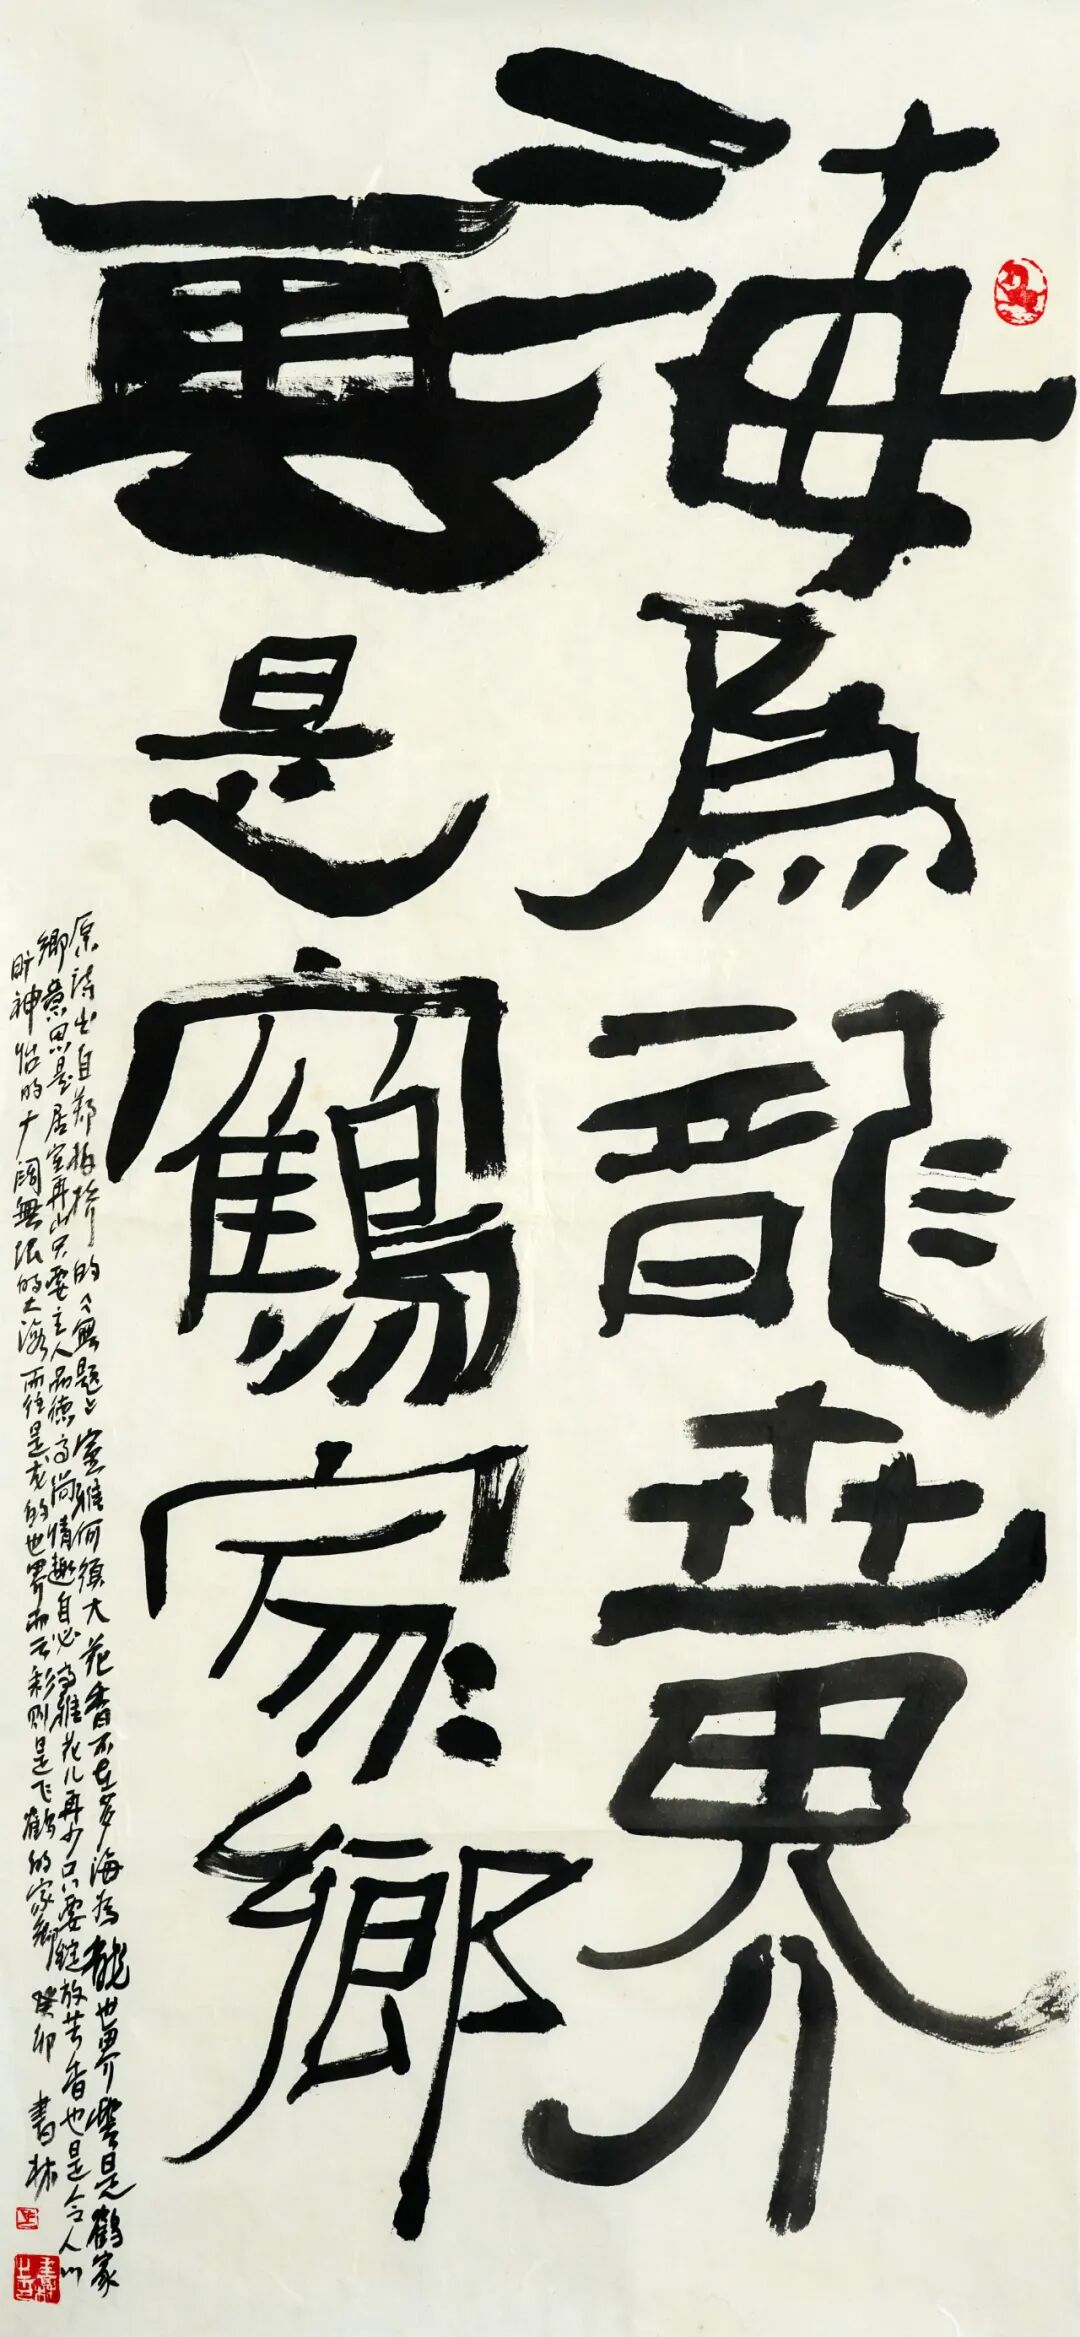 海為龍世界
雲是鶴家鄉
原诗出自郑板桥的《無题》室雅何须大花香不在多海为龍世界雲是鶴家
鄉意思是居室再小只要主人品德高尚情趣自必高雅花儿再少只要绽放芳香也是令人心
旷神怡的广阔無限的大海而往是龙的世界而云彩则是飞鹤的家鄉 癸卯 書林